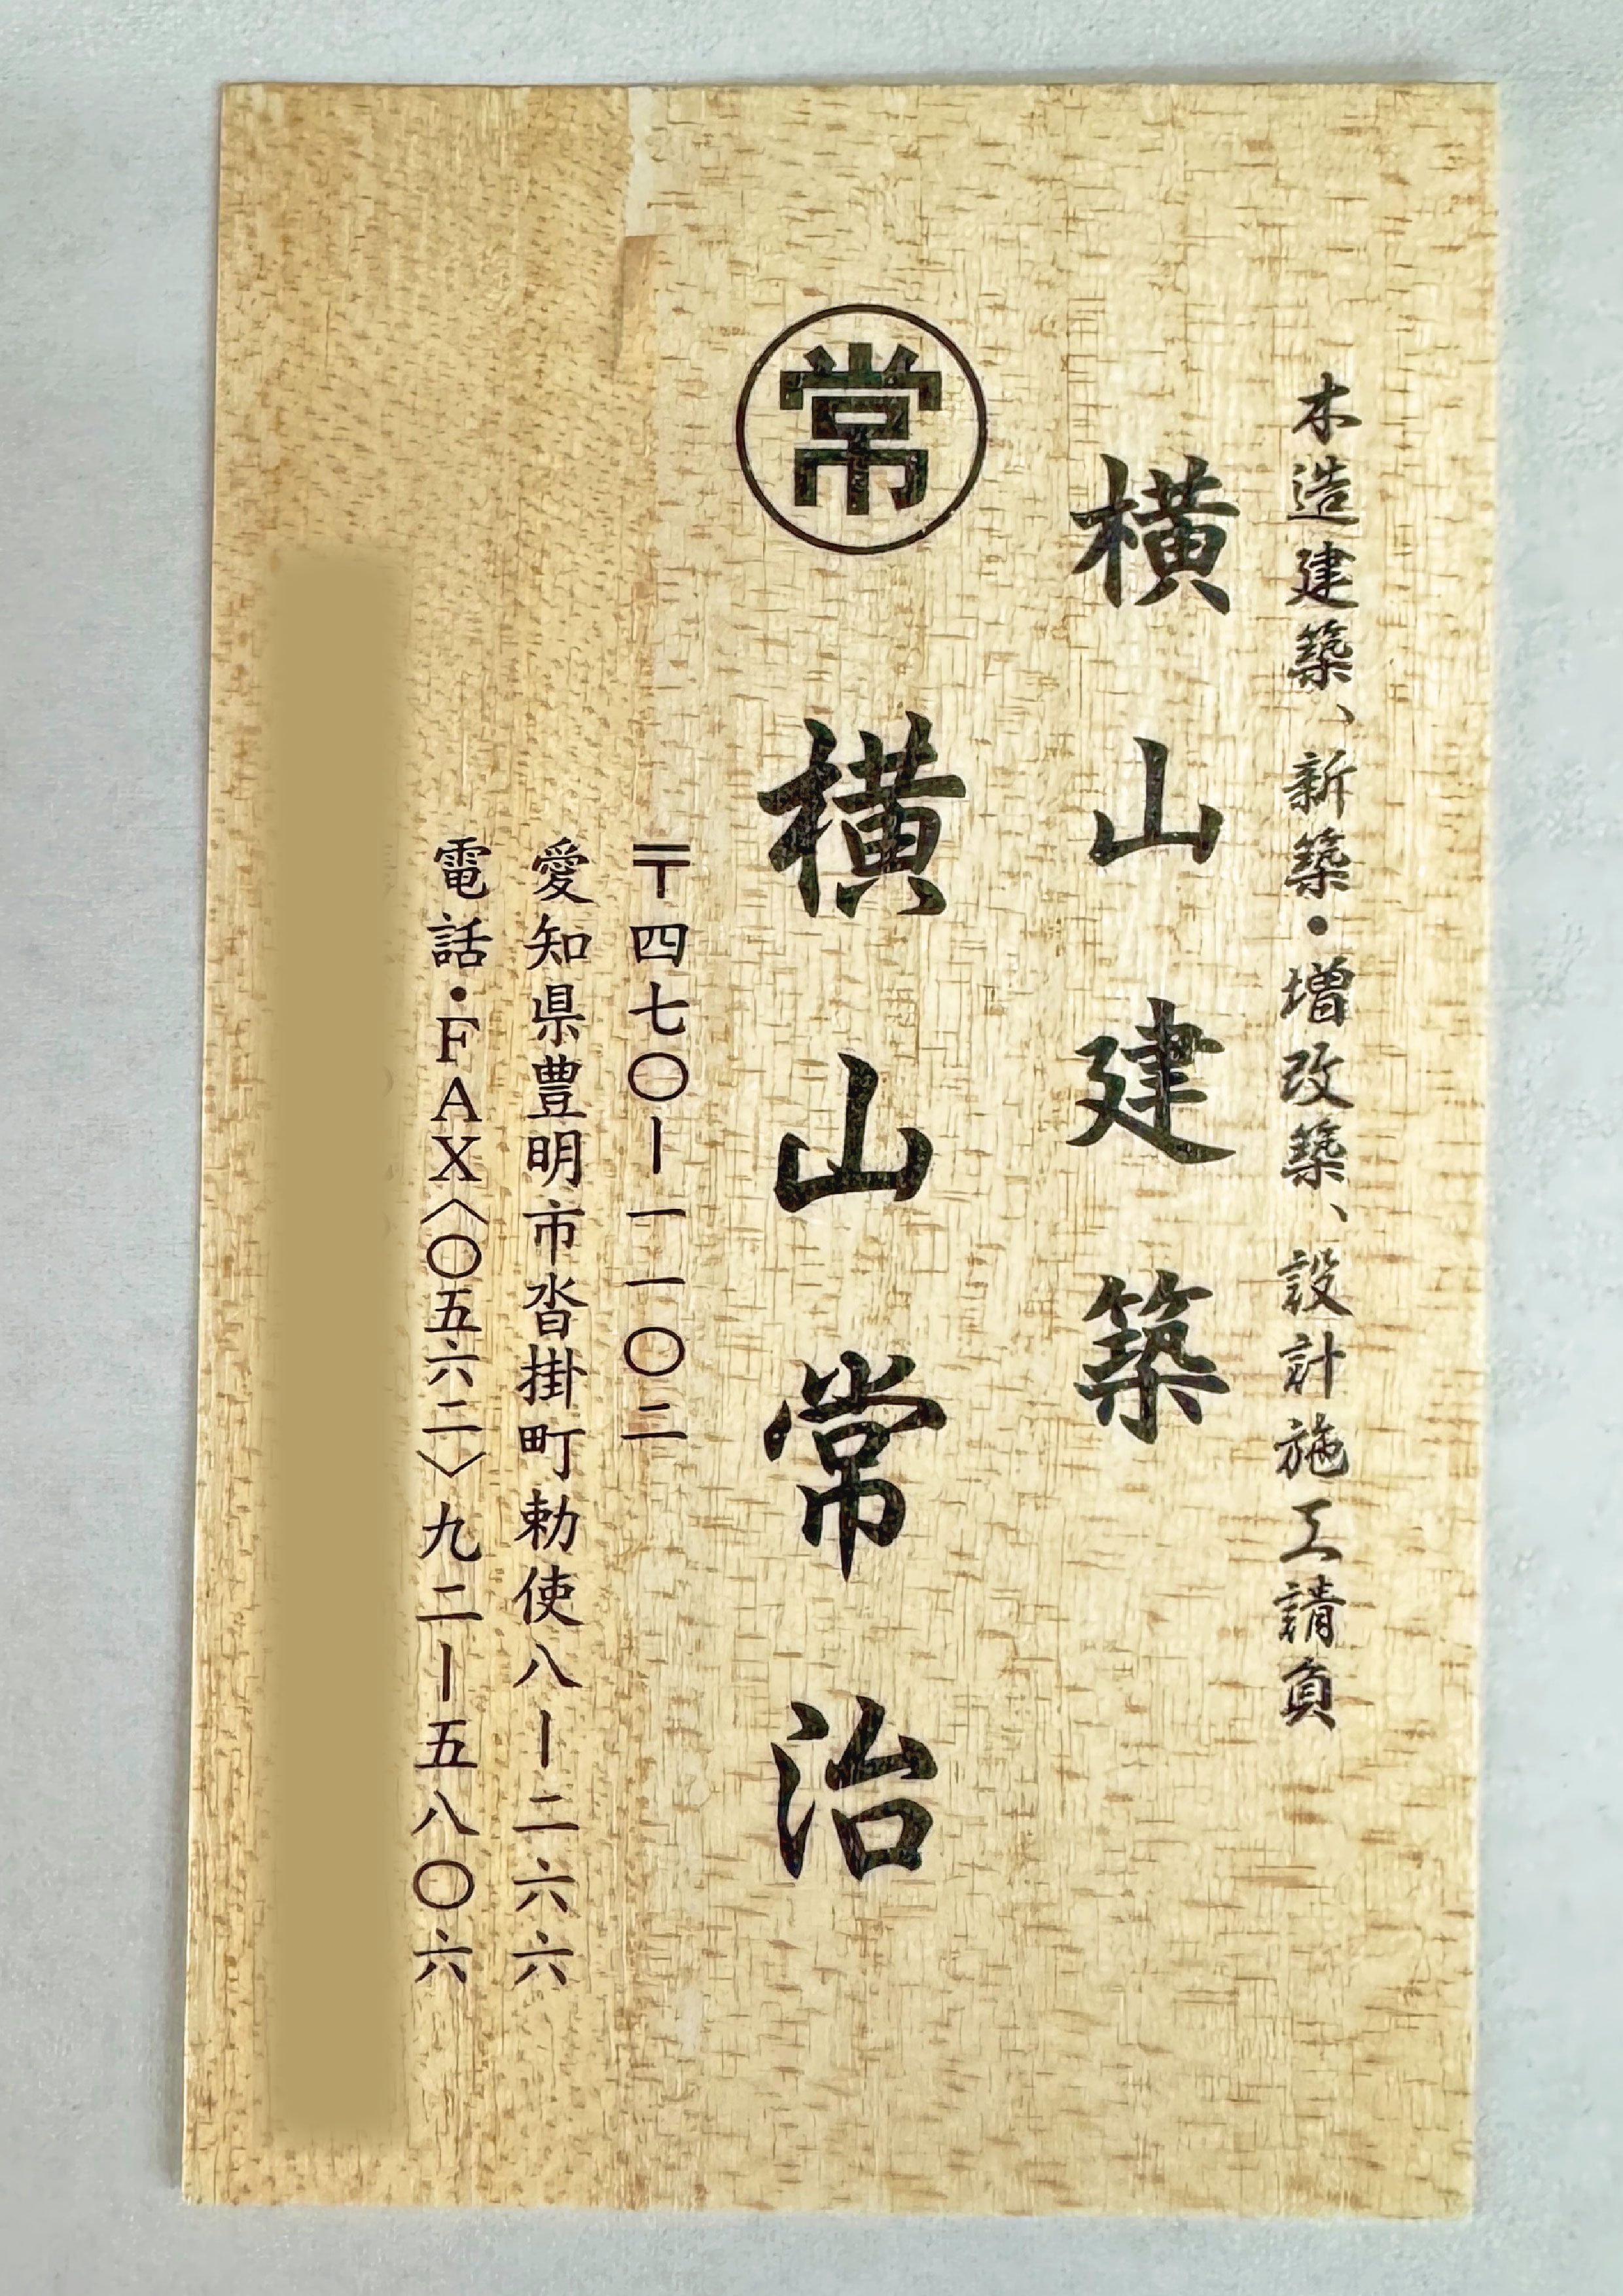 木造建築、新築・増改築、設計施工請負
横山建築
常 横山常治
〒四七〇ー一一〇二
愛知県豊明市沓掛町勅使八ー二六六
電話・FAX〈〇五六二〉九二ー五八〇六